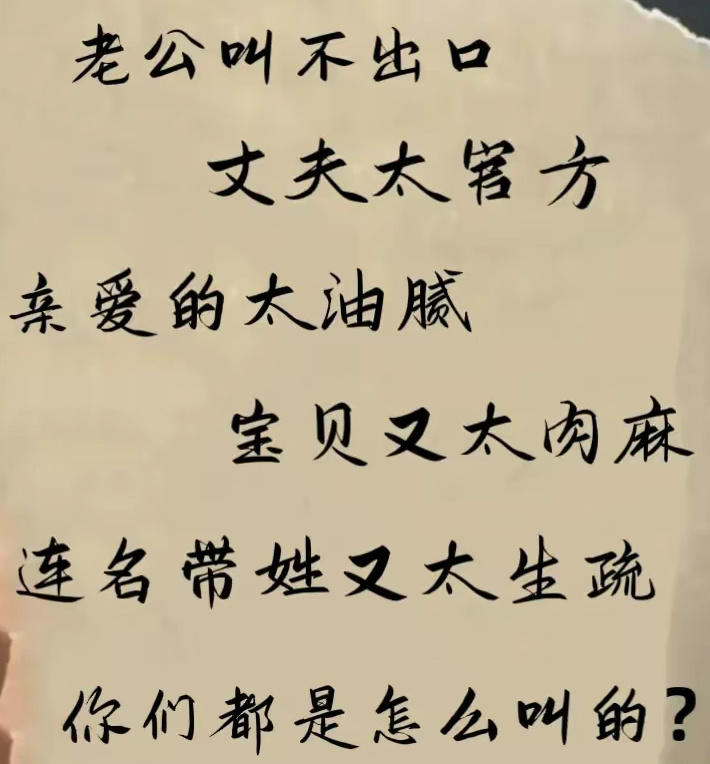 老公叫不出口
丈夫太官方
亲爱的太油腻
宝贝又太肉麻
连名带姓又太生疏
你们都是怎么叫的?